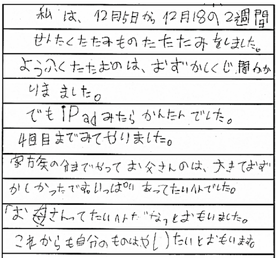 私は、12月5日から12月18の2週間
せんたくたたみものたたたみをしました。
ようふくたたむのは、むずかしくじ間かか
りま ました。
でもiPadみたらかんたんでした。
4回目までみてやりました。
家方族の分までやって お父さんのは、大きてむず
かしかったですいっぱい あってたいへんでした。
「お母さんってたいへんだな」っとおもいました。
これからも自分のものはやりたいとおもいます。